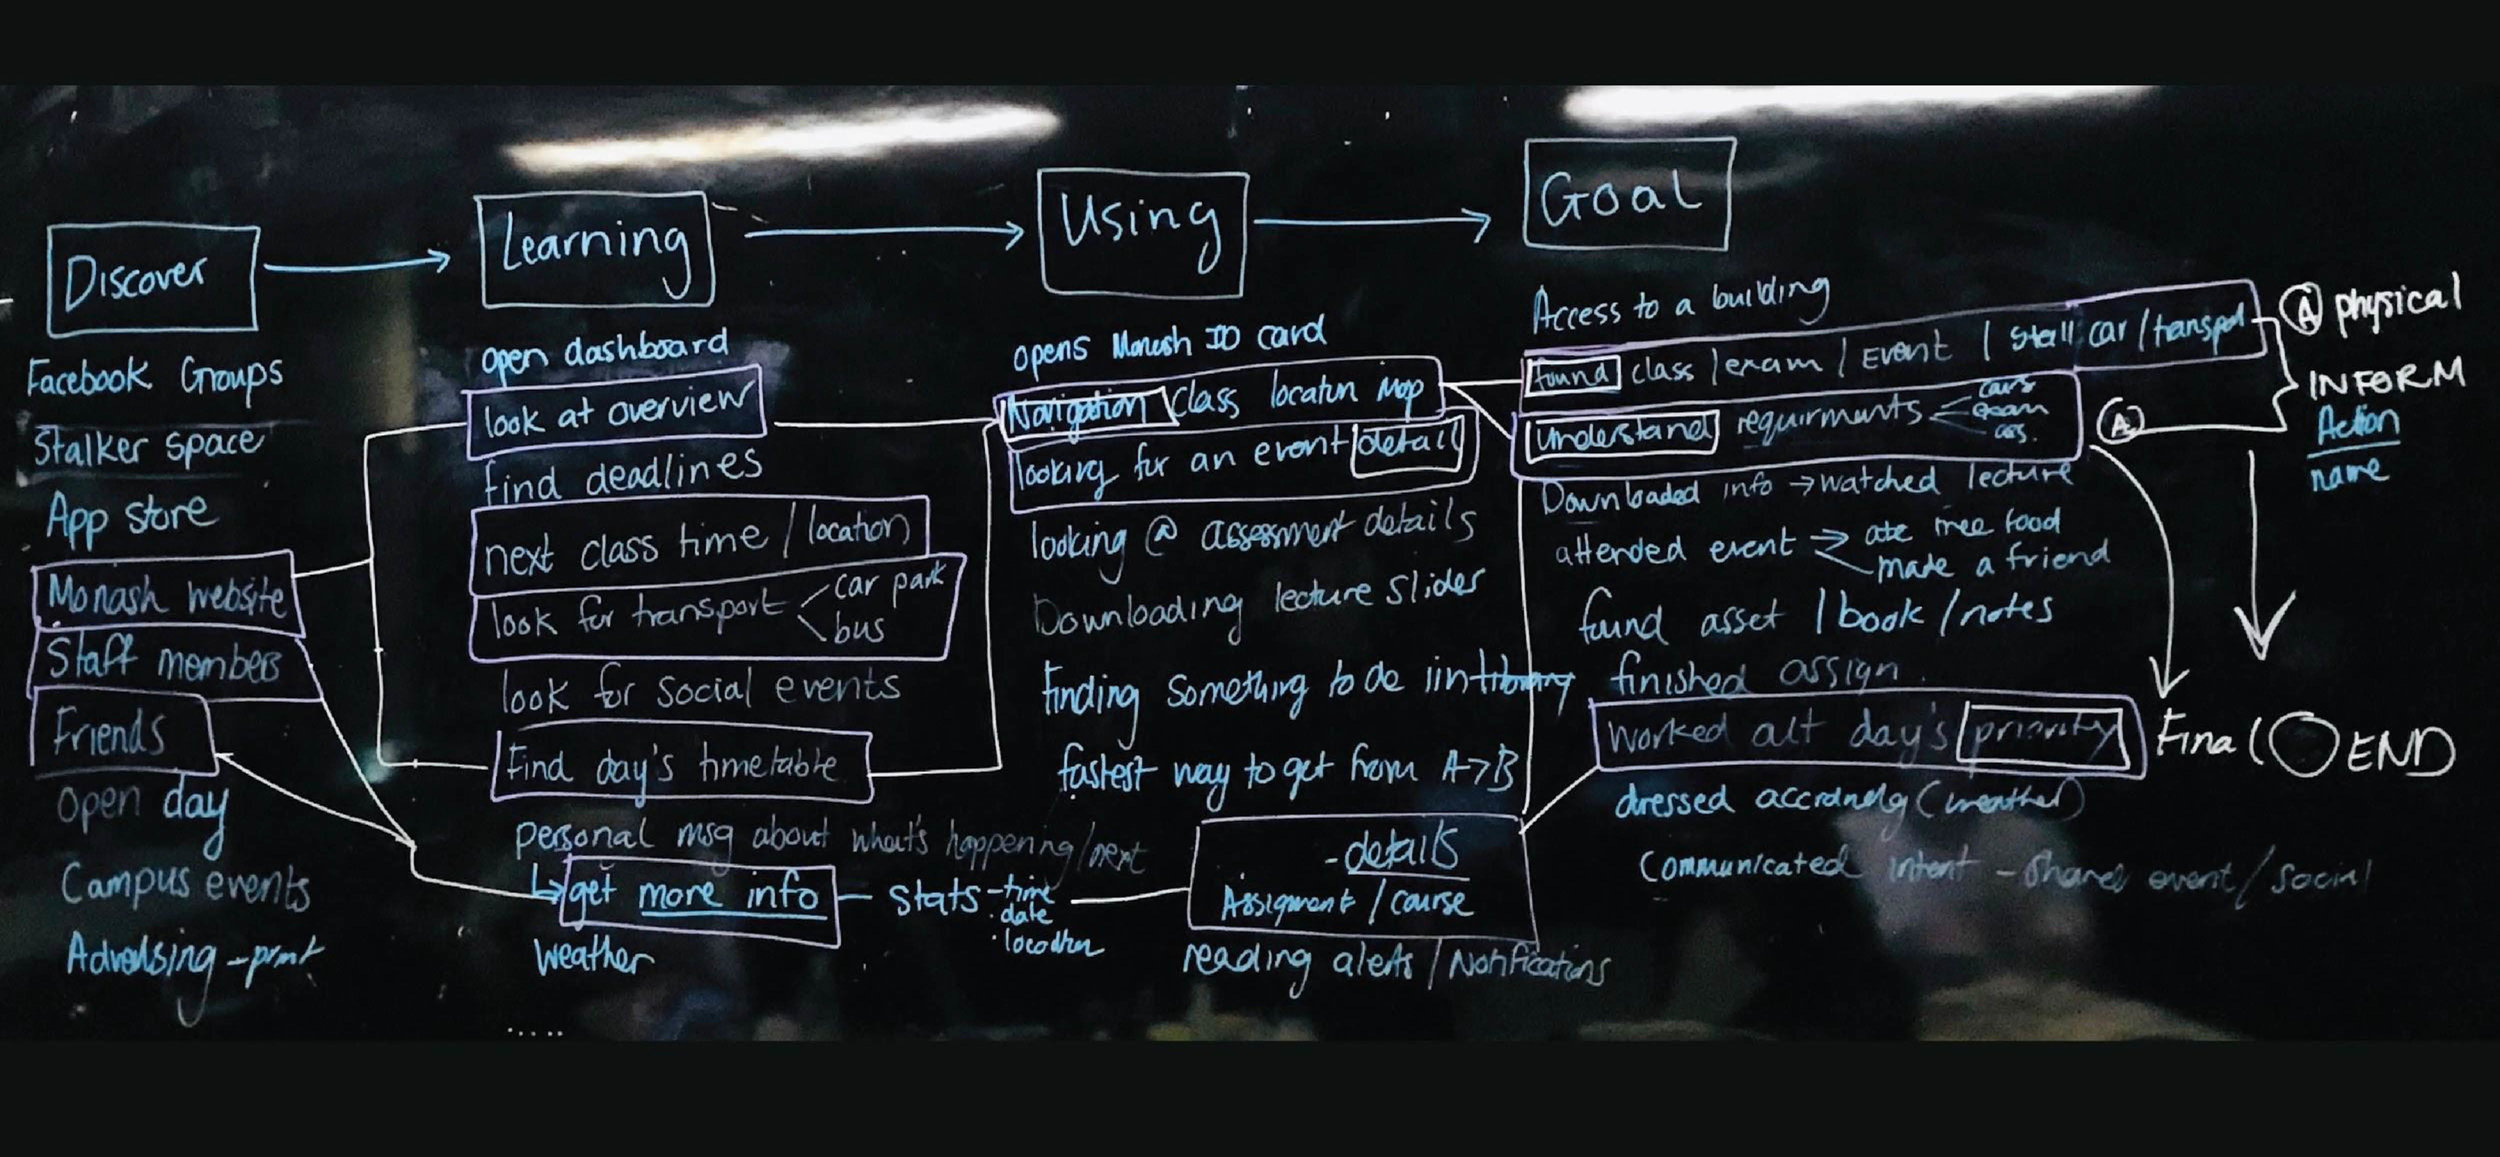 Discover
Facebook Groups
Stalker space
App store
Monash website
Staff members
Friends
Open day
Campus events
Learning
open dashboard
look at overview
find deadlines
next class time / location
look for transport
car park
bus
look for social events
Find day's timetable
personal msg about what's happening/next
get more info
stats - time
. date
Weather
Using
opens Monash ID card
Navigation class map
looking for an event detail
looking @ assessment details
Downloading lecture slides
Finding something to do
fastest way to get from A→B
- details
/ course
reading alerts / Notifications
Goal
Access to a building
found class / exam / Event / car /
Understand
exam
ass.
Downloaded info → watched lecture
attended event → ate free food
made a friend
found asset / book / notes
finished assign.
worked day's priority
dressed (weather)
Communicated intent event / social
A physical
INFORM
A
Action
name
Final
END